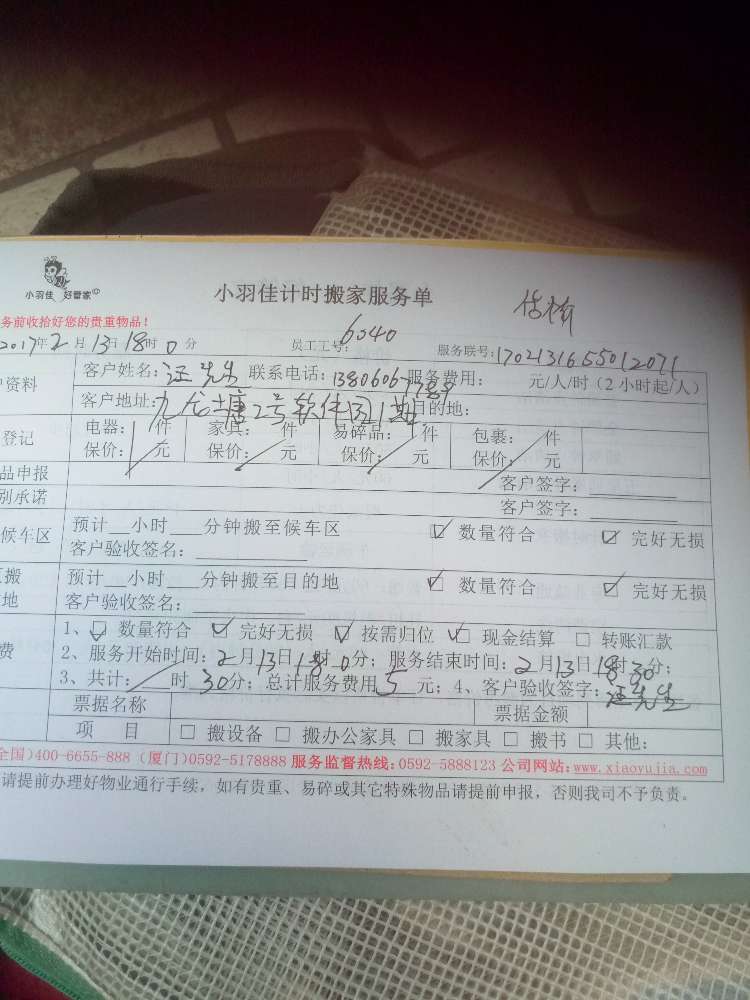 小羽佳 好管家
小羽佳计时搬家服务单
务前收拾好您的贵重物品！
2017年2月13日18时0分 员工工号：6040 服务联号：
客户姓名：汪先生 联系电话： 服务费用： 元/人/时（2小时起/人）
户资料
客户地址：九龙塘2号软件园1期 目的地：
登记
电器： 件 家具： 件 易碎品： 件 包裹： 件
保价： 元 保价： 元 保价： 元 保价： 元
品申报 客户签字：
别承诺 客户签字：
候车区 预计 小时 分钟搬至候车区 ☑ 数量符合 ☑ 完好无损
客户验收签名：
搬 预计 小时 分钟搬至目的地 ☑ 数量符合 ☑ 完好无损
地 客户验收签名：
1、☑ 数量符合 ☑ 完好无损 ☑ 按需归位 ☑ 现金结算 □ 转账汇款
费 2、服务开始时间：2月13日18时0分；服务结束时间：2月13日18时30分；
3、共计： 时30分；总计服务费用5元；4、客户验收签字：汪先生
票据名称 票据金额
项 目 □ 搬设备 □ 搬办公家具 □ 搬家具 □ 搬书 □ 其他：
全国)400-6655-888 (厦门)0592-5178888 服务监督热线：0592-5888123 公司网站：www.xiaoyujia.com
请提前办理好物业通行手续，如有贵重、易碎或其它特殊物品请提前申报，否则我司不予负责。